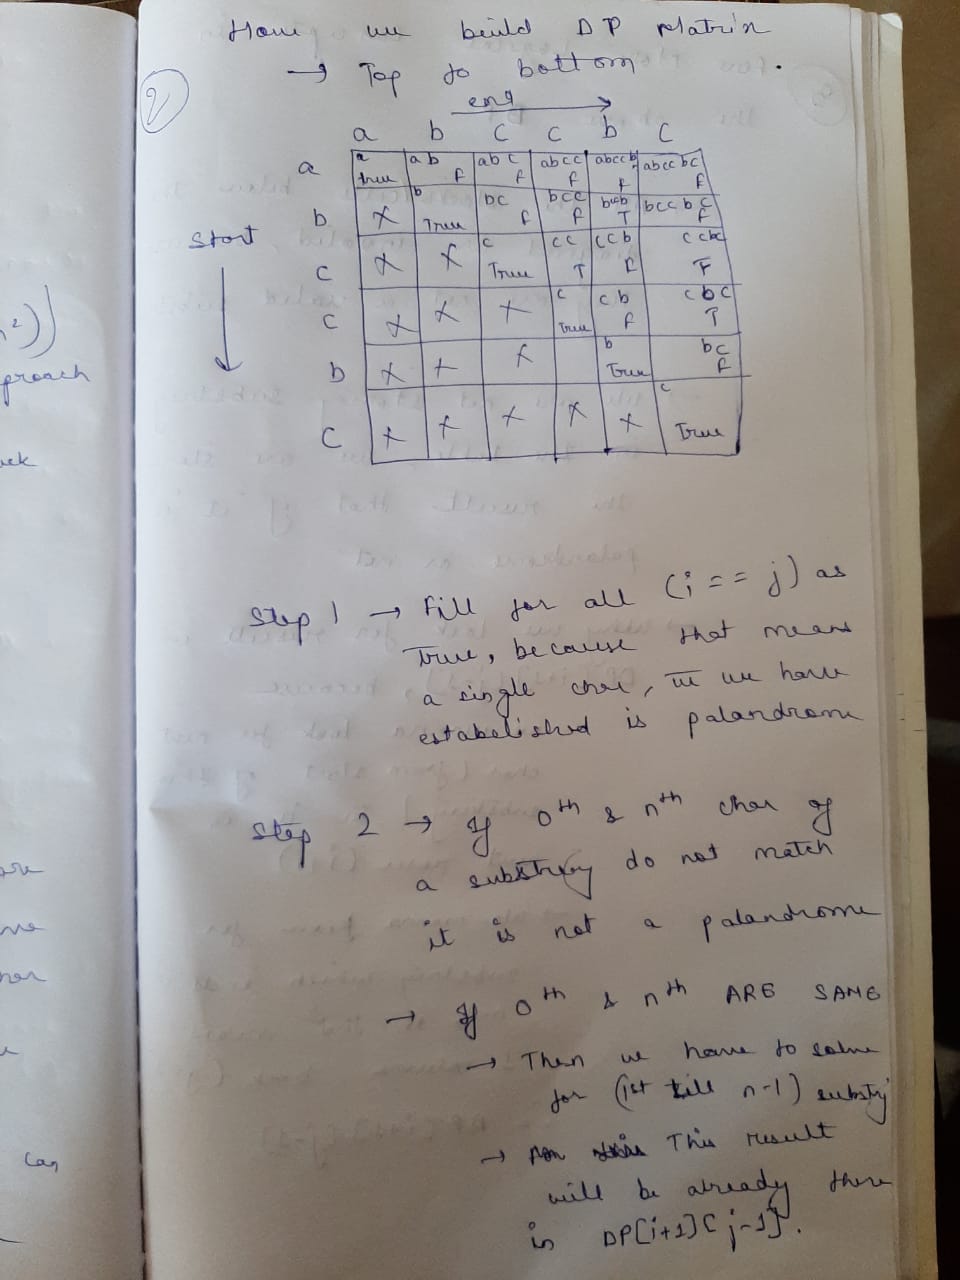 How we build DP Matrix
→ Top to bottom.
2)
end →
a b c c b c
a
a true
ab f
abc f
abcc f
abccb f
abccbc f
b
X
b True
bc f
bcc f
bccb T
bccbc f
start
c
X
X
c True
cc T
ccb F
ccbc F
c
X
X
X
c True
cb f
cbc T
b
X
X
X
b True
bc F
c
X
X
X
X
X
c True
n²))
proach
Step 1 → Fill for all (i == j) as
True, because that means
a single char, we have
estabelished is palandrome
Step 2 → If 0th & nth char of
a substring do not match
it is not a palandrome
→ If 0th & nth ARE SAME
→ Then we have to solve
for (1st till n-1) substry
→ This result
will be already there
in DP[i+1][j-1].
can